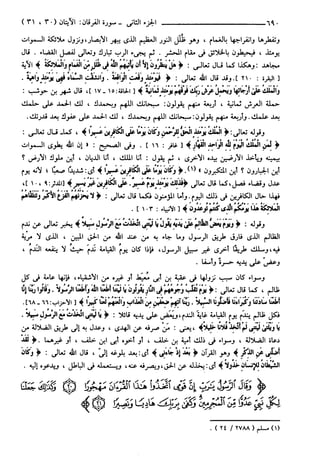 ٦٩٠ ــــــ الجزء الثاني - سورة الفرقان: الآيتان (٣٠، ٣١)
وتفطرها وانفراجها بالغمام، وهو ظُلل النور العظيم الذي يبهر الأبصار، ونزول ملائكة السموات
يومئذ، فيحيطون بالخلائق في مقام المحشر. ثم يجيء الرب تبارك وتعالى لفصل القضاء. قال
مجاهد: وهكذا كما قال تعالى: ﴿ هل ينظرون إلا أن يأتيهم الله في ظلل من الغمام والملائكة ﴾ الآية
[البقرة: ٢١٠] وقد قال الله تعالى: ﴿ فيومئذ وقعت الواقعة. وانشقت السماء فهي يومئذ واهية.
والملك على أرجائها ويحمل عرش ربك فوقهم يومئذ ثمانية ﴾ [الحاقة: ١٥-١٧]، قال شهر بن حوشب:
حملة العرش ثمانية، أربعة منهم يقولون: سبحانك اللهم وبحمدك، لك الحمد على حلمك
بعد علمك. وأربعة منهم يقولون: سبحانك اللهم وبحمدك، لك الحمد على عفوك بعد قدرتك.
وقوله تعالى: ﴿ الملك يومئذ الحق للرحمن وكان يوما على الكافرين عسيرا ﴾، كما قال تعالى:
﴿ لمن الملك اليوم لله الواحد القهار ﴾ [غافر: ١٦]. وفي الصحيح: «إن الله يطوي السموات
بيمينه ويأخذ الأرضين بيده الأخرى، ثم يقول: أنا الملك، أنا الديان، أين ملوك الأرض؟
أين الجبارون؟ أين المتكبرون»(١). ﴿ وكان يوما على الكافرين عسيرا ﴾ أي: شديداً صعباً؛ لأنه يوم
عدل وقضاء فصل، كما قال تعالى ﴿ فذلك يومئذ يوم عسير. على الكافرين غير يسير ﴾ [المدثر: ٩، ١٠]،
فهذا حال الكافرين في ذلك اليوم. وأما المؤمنون فكما قال تعالى: ﴿ لا يحزنهم الفزع الأكبر وتتلقاهم
الملائكة هذا يومكم الذي كنتم توعدون ﴾ [الأنبياء: ١٠٣].
وقوله: ﴿ ويوم يعض الظالم على يديه يقول يا ليتني اتخذت مع الرسول سبيلا ﴾ يخبر تعالى عن ندم
الظالم الذي فارق طريق الرسول وما جاء به من عند الله من الحق المبين، الذي لا مرية
فيه، وسلك طريقاً أخرى غير سبيل الرسول، فإذا كان يومُ القيامة نَدمَ حيثُ لا ينفعه النَدَم،
وعضّ على يديه حسرةً وأسفاً.
وسواء كان سبب نزولها في عقبة بن أبي مُعَيط أو غيره من الأشقياء، فإنها عامة في كل
ظالم، كما قال تعالى: ﴿ يوم تقلب وجوههم في النار يقولون يا ليتنا أطعنا الله وأطعنا الرسولا. وقالوا ربنا إنا
أطعنا سادتنا وكبراءنا فأضلونا السبيلا. ربنا آتهم ضعفين من العذاب والعنهم لعنا كبيرا ﴾ [الأحزاب: ٦٦-٦٨].
فكل ظالم يندم يوم القيامة غاية الندم، ويعَضّ على يديه قائلا: ﴿ يا ليتني اتخذت مع الرسول سبيلا.
يا ويلتى ليتني لم أتخذ فلانا خليلا ﴾، يعني: مَنْ صرفه عن الهدى، وعدل به إلى طريق الضلالة من
دعاة الضلالة، وسواء في ذلك أمية بن خلف، أو أخوه أبي ابن خلف، أو غيرهما. ﴿ لقد
أضلني عن الذكر ﴾ وهو القرآن ﴿ بعد إذ جاءني ﴾ أي: بعد بلوغه إليّ، قال الله تعالى: ﴿ وكان
الشيطان للإنسان خذولا ﴾ أي: يخذله عن الحق، ويصرفه عنه، ويستعمله في الباطل، ويدعوه إليه.
﴿ وقال الرسول يا رب إن قومي اتخذوا هذا القرآن مهجورا (٣٠) وكذلك جعلنا
لكل نبي عدوا من المجرمين وكفى بربك هاديا ونصيرا (٣١) ﴾
(١) مسلم (٢٧٨٨ / ٢٤).